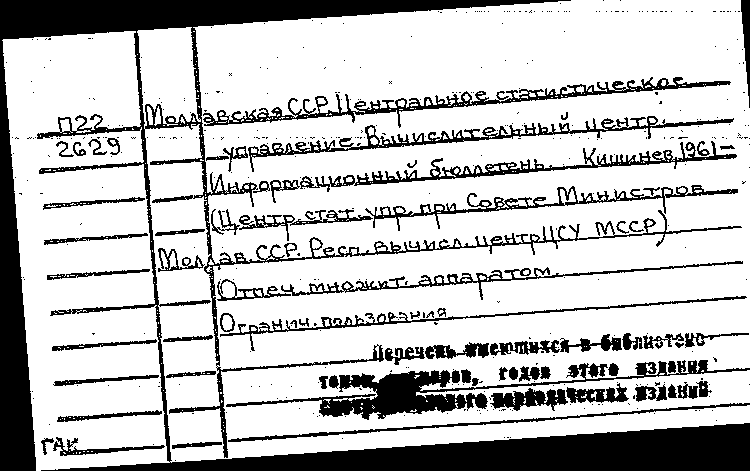 П22
2629
Молдавская ССР. Центральное статистическое
управление. Вычислительный центр.
Информационный бюллетень. Кишинев, 1961—
(Центр. стат. упр. при Совете Министров
Молдав. ССР. Респ. вычисл. центр ЦСУ МССР)
Отпеч. множит. аппаратом.
Огранич. пользования
Перечень имеющихся в библиотеке
томов, номеров, годов этого издания
периодических изданий
ГАК